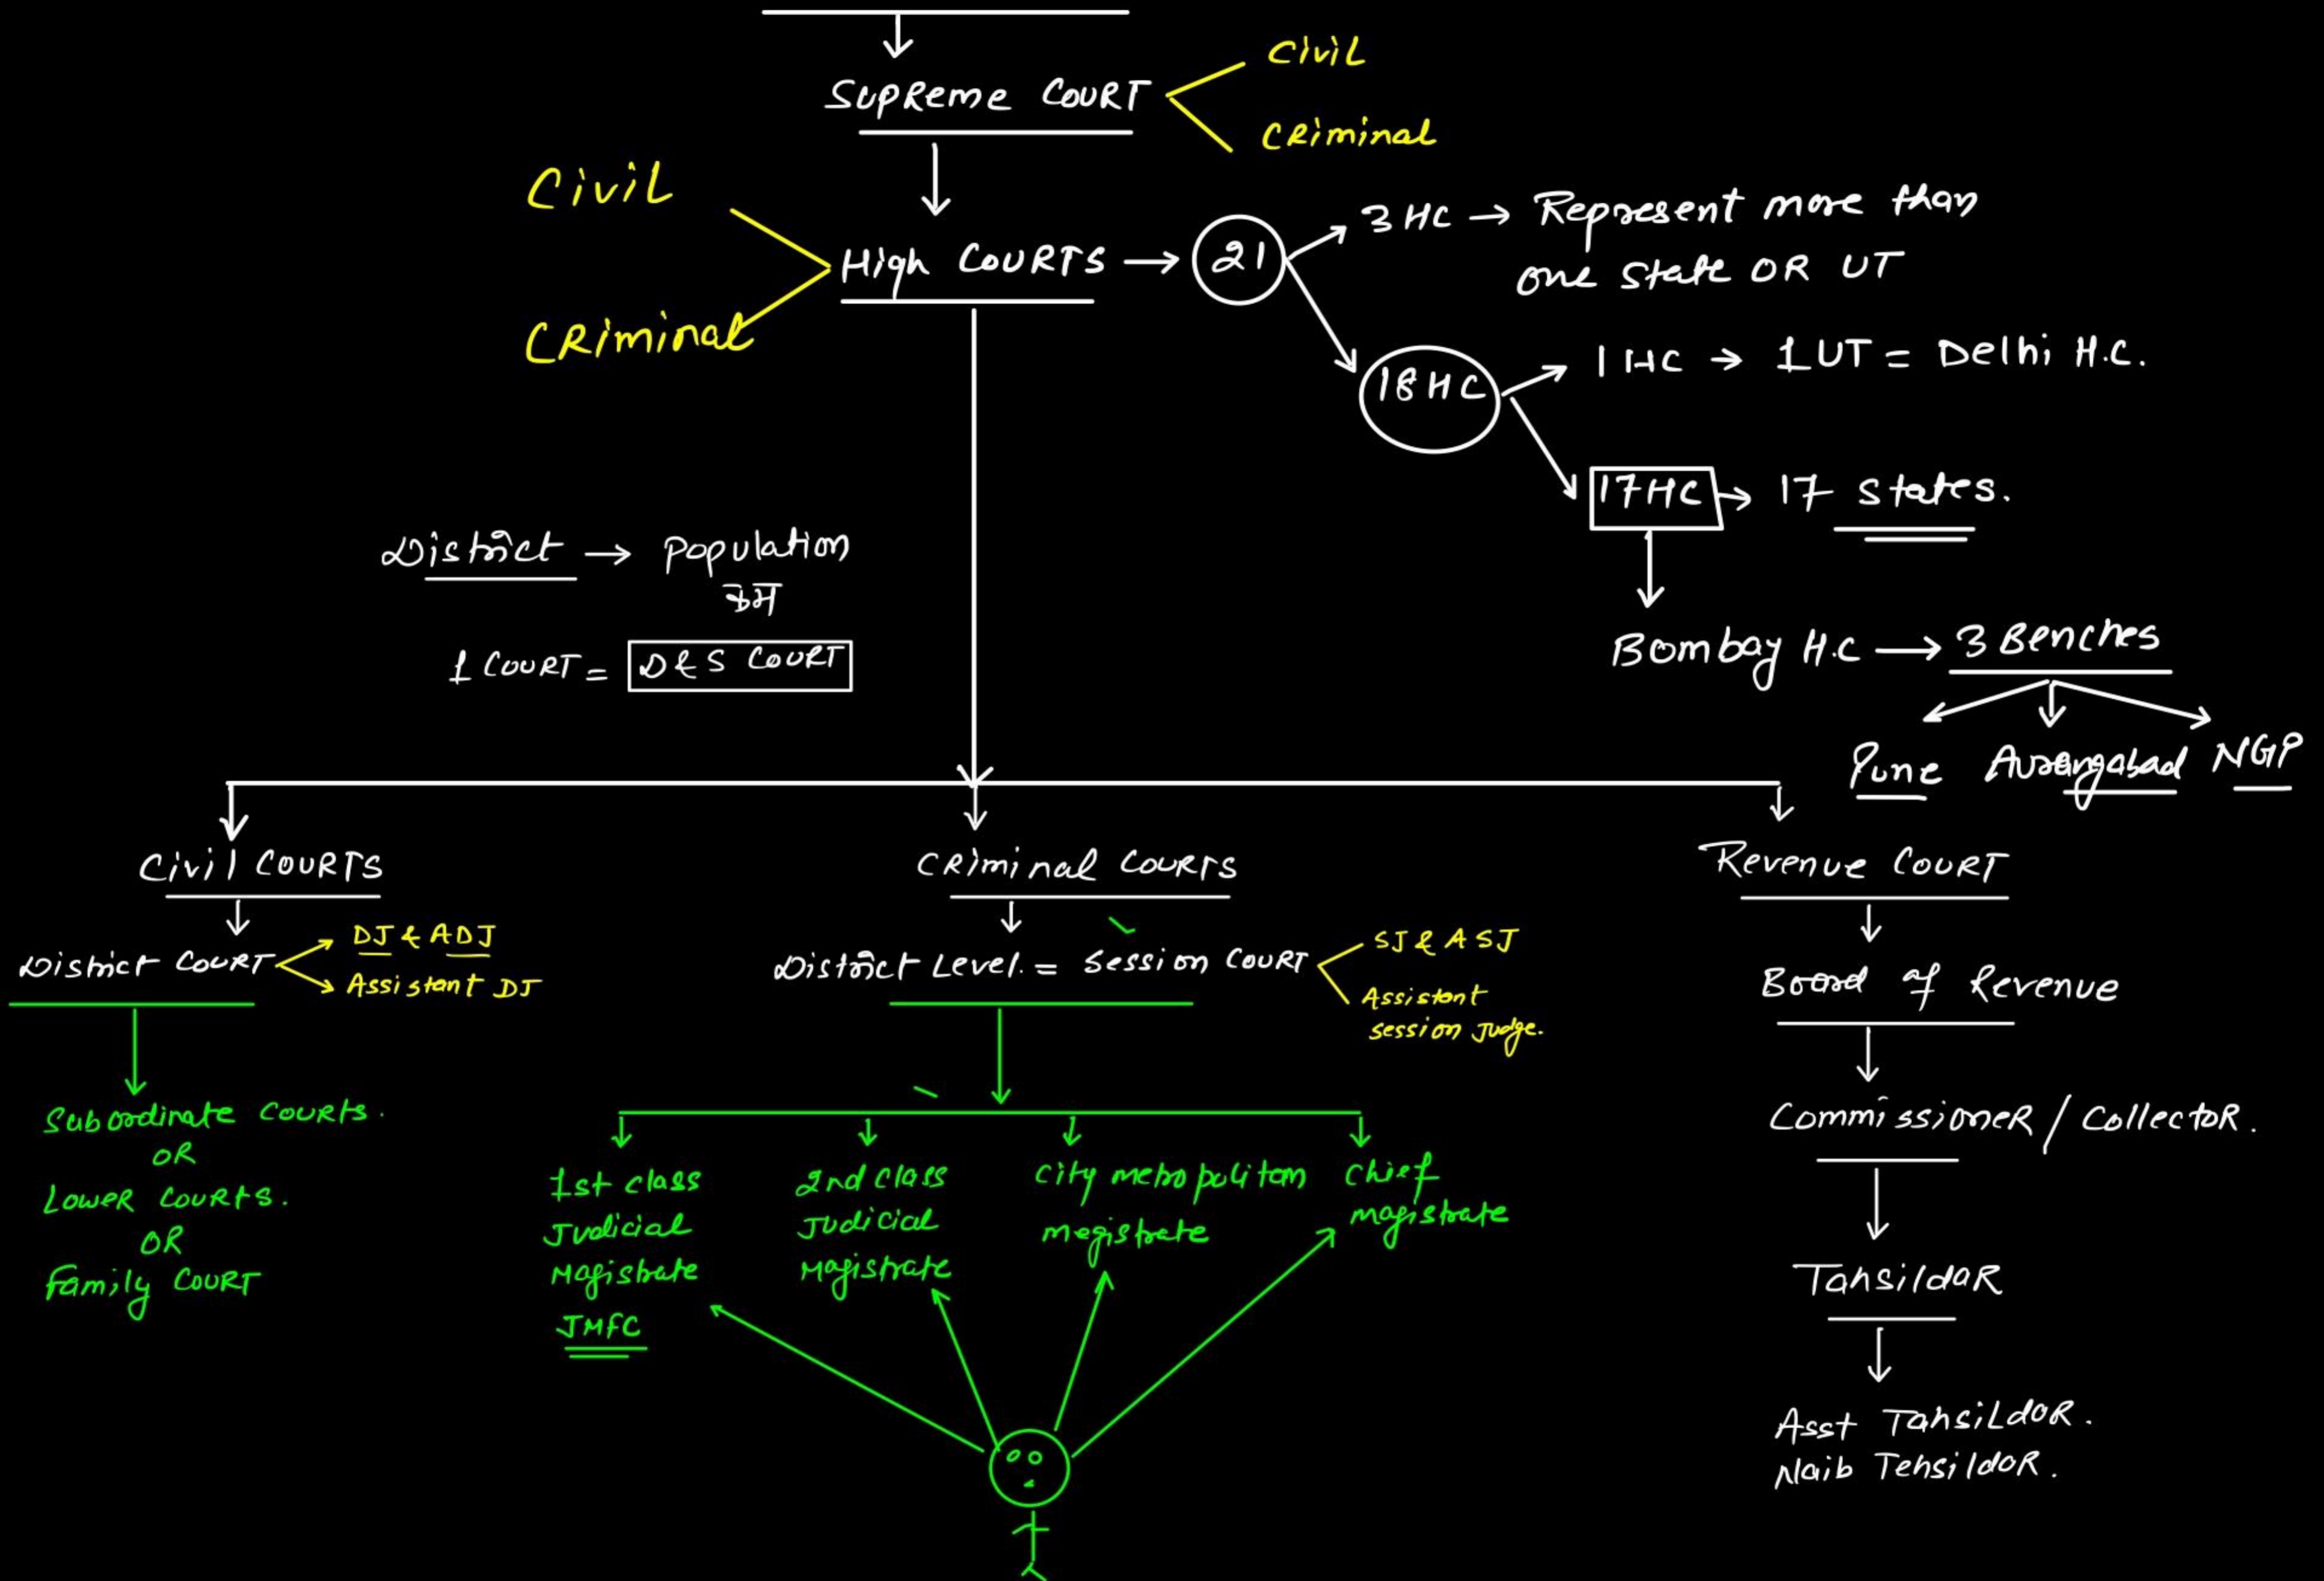 SUPREME COURT
Civil
Criminal
Civil
Criminal
High COURTS → 21
3 HC → Represent more than
one state OR UT
18 HC
1 HC → 1 UT = Delhi H.C.
17 HC → 17 states.
Bombay H.C → 3 Benches
Pune Aurangabad NGP
District → Population
कम
1 COURT = D & S COURT
Civil COURTS
District COURT
DJ & ADJ
Assistant DJ
Subordinate Courts.
OR
Lower Courts.
OR
Family COURT
Criminal Courts
District Level. = Session Court
SJ & ASJ
Assistant
Session Judge.
1st class
Judicial
Magistrate
JMFC
2nd class
Judicial
Magistrate
City metropolitan
megistrate
Chief
magistrate
Revenue Court
Board of Revenue
Commissioner / Collector.
Tahsildar
Asst Tahsildar.
Naib Tehsildor.